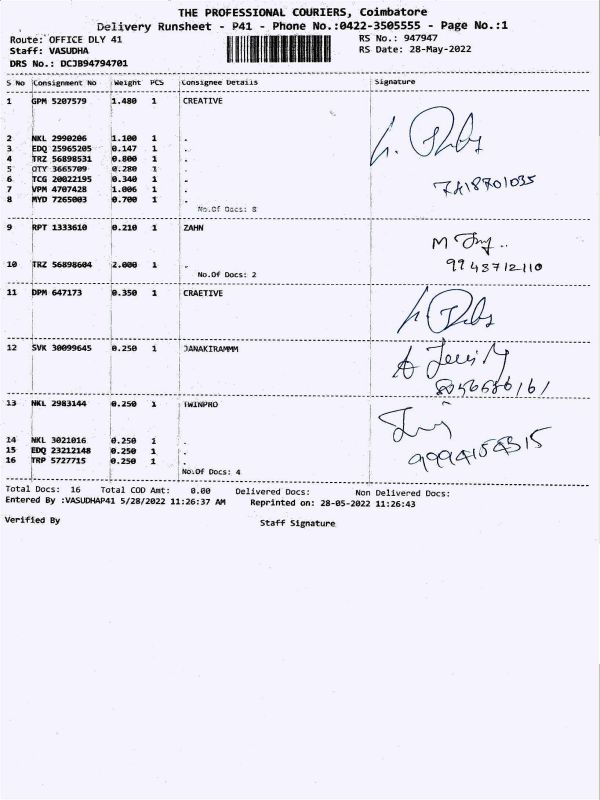 THE PROFESSIONAL COURIERS, Coimbatore
Delivery Runsheet - P41 - Phone No.:0422-3505555 - Page No.:1
Route: OFFICE DLY 41 RS No.: 947947
Staff: VASUDHA RS Date: 28-May-2022
DRS No.: DCJB94794701
S No Consignment No Weight PCS Consignee Details Signature
1 GPM 5207579 1.480 1 CREATIVE
2 NKL 2990206 1.100 1 .
3 EDQ 25965205 0.147 1 .
4 TRZ 56898531 0.800 1 .
5 OTY 3665709 0.280 1 .
6 TCG 20022195 0.340 1 .
7 VPM 4707428 1.006 1 .
8 MYD 7265003 0.700 1 .
No.Of Docs: 8
9 RPT 1333610 0.210 1 ZAHN
10 TRZ 56898604 2.000 1 .
9943712110
No.Of Docs: 2
11 DPM 647173 0.350 1 CRAETIVE
12 SVK 30099645 0.250 1 JANAKIRAMMM
8056686161
13 NKL 2983144 0.250 1 TWINPRO
14 NKL 3021016 0.250 1 .
15 EDQ 23212148 0.250 1 .
16 TRP 5727715 0.250 1 .
No.Of Docs: 4
Total Docs: 16 Total COD Amt: 0.00 Delivered Docs: Non Delivered Docs:
Entered By :VASUDHAP41 5/28/2022 11:26:37 AM Reprinted on: 28-05-2022 11:26:43
Verified By Staff Signature